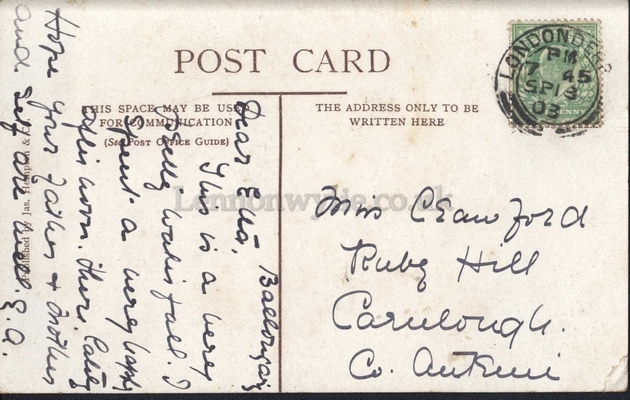 POST CARD
THIS SPACE MAY BE USED
FOR COMMUNICATION
(See Post Office Guide)
THE ADDRESS ONLY TO BE
WRITTEN HERE
LONDONDERRY
PM
7 45
SP 13
03
Lennonwylie.co.uk
Published by Jas.
Dear Etta,
This is a very
pretty waterfall. I
spent a very happy
afternoon there.
Hope your Father & Mother
and are well
Miss Crawford
Ruby Hill
Carnlough.
Co. Antrim